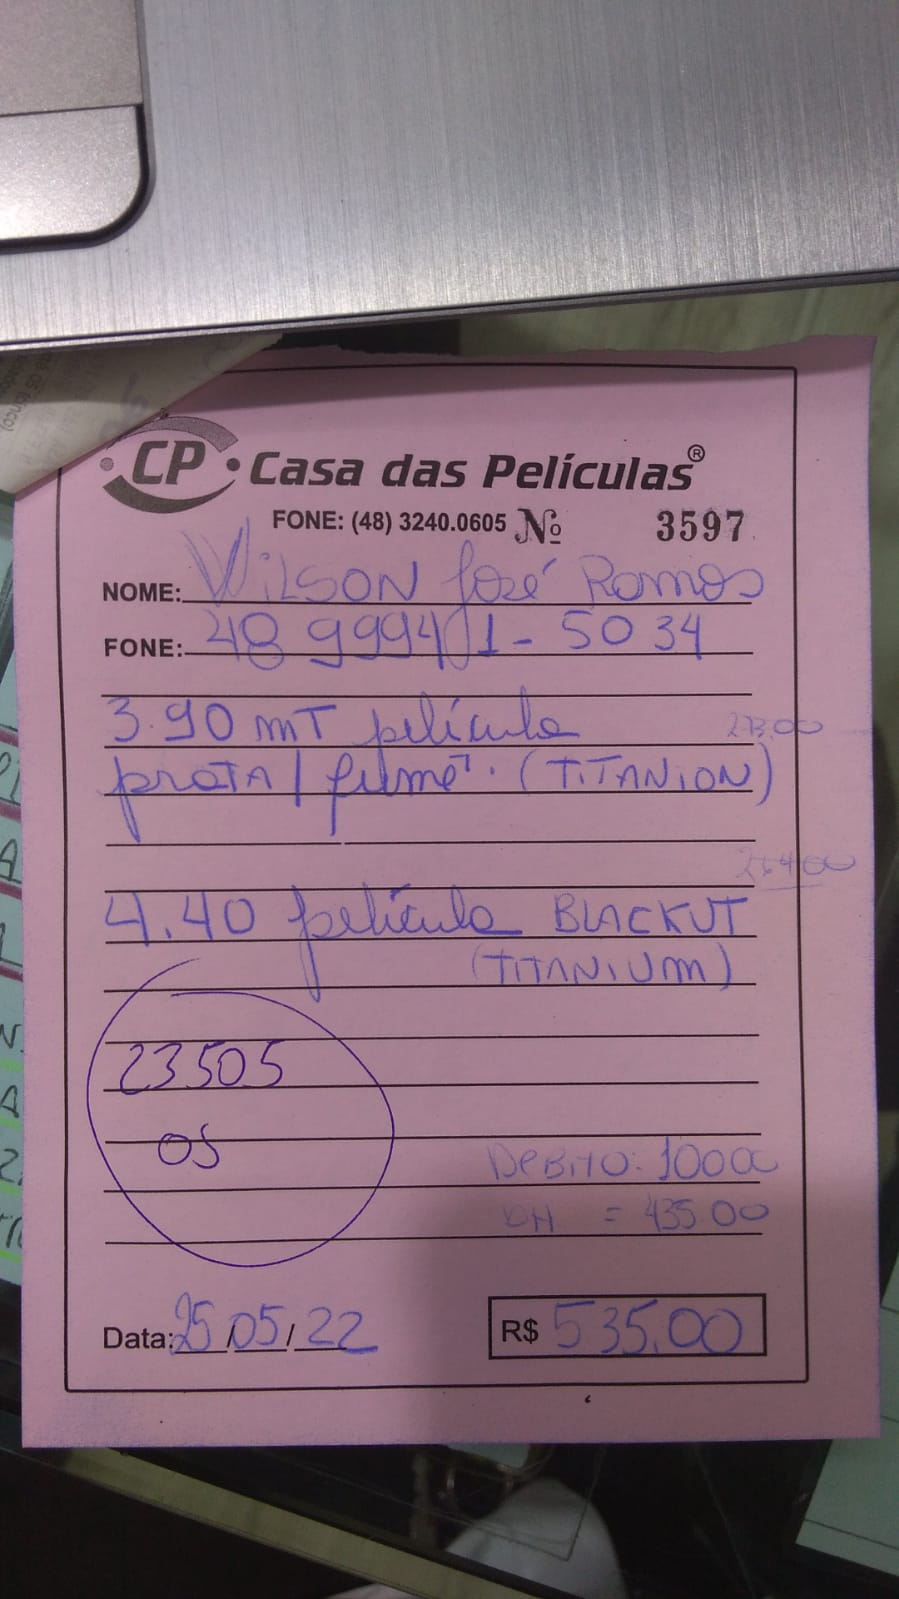 CP Casa das Películas®
FONE: (48) 3240.0605 Nº 3597
NOME: Wilson José Ramos
FONE: 48 999401-5034
3.90 mT película 273,00
prata / fumê. (TITANION)
264,00
4.40 película BLACKUT
(TITANIUM)
23505
OS
DEBITO: 100,00
DH = 435,00
Data: 25/05/22 R$ 535,00